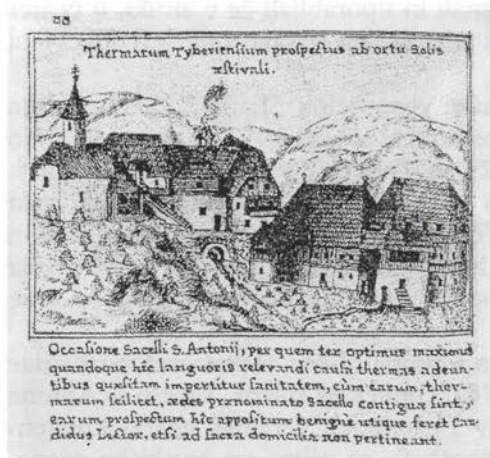 Thermarum Tyberiensium prospectus ab ortu Solis
æstivali.
Occasione Sacelli S. Antonij, per quem ter optimus maximus
quandoque hîc languoris relevandi causâ thermas adeun-
tibus quæsitam impertitur sanitatem, cùm earum, ther-
marum scilicet, ædes prænominato Sacello contiguæ sint,
earum prospectum hîc appositum benignè utique feret Can-
didus Lector, etsi ad sacra domicilia non pertineant.